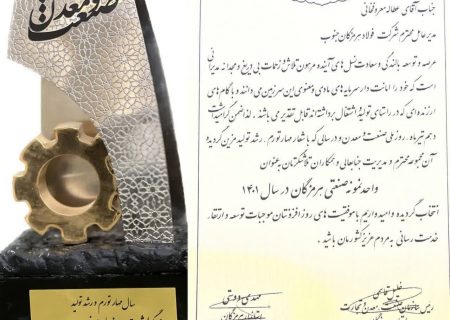 صنعت و معدن
سال مهار تورم و رشد تولید
جناب آقای عطااله معروفخانی
مدیرعامل محترم شرکت فولاد هرمزگان جنوب
عرصه و توسعه بالندگی و سعادت نسل های آینده مرهون تلاش و زحمات بی دریغ و مجدانه مدیرانی
است که خود را امانت دار سرمایه های مادی و معنوی این سرزمین می دانند و با گام های
ارزنده ای که در راستای تولید و اشتغال برداشته اند قابل تقدیر می باشند. لذا ضمن گرامیداشت
دهم تیرماه، روز ملی صنعت و معدن و در سالی که با شعار مهار تورم، رشد تولید مزین گردیده
آن مجموعه محترم و مدیریت جنابعالی و همکاران تلاشگرتان به عنوان
واحد نمونه صنعتی هرمزگان در سال ۱۴۰۱
انتخاب گردیده و امیدواریم با موفقیت های روز افزونتان موجبات توسعه و ارتقاء
خدمت رسانی به مردم عزیز کشورمان باشید.
خلیل قاسمی
رئیس سازمان صنعت، معدن و تجارت
مهدی دوستی
استاندار هرمزگان